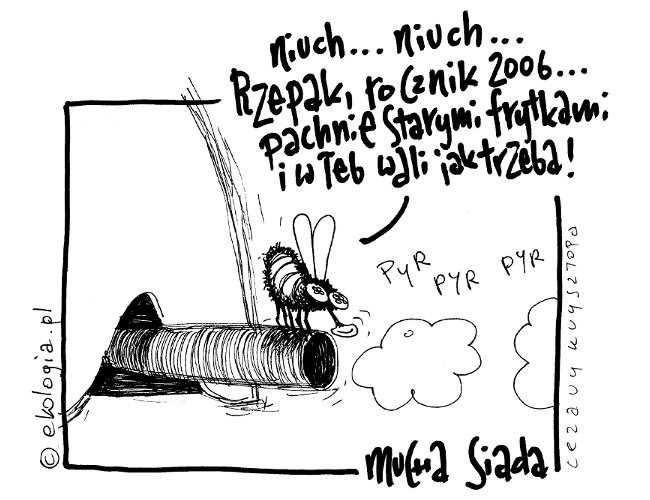 niuch... niuch...
Rzepak, rocznik 2006...
pachnie starymi frytkami
i w łeb wali jak trzeba!
PYR PYR PYR
© ekologia.pl
cezary krysztopa
mucha Siada